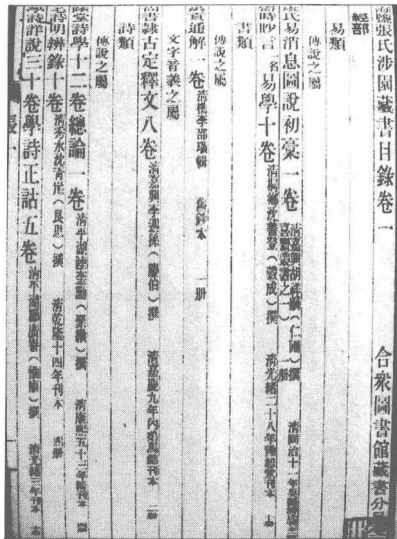 海鹽張氏涉園藏書目錄卷一
合衆圖書館藏書分目
經部
易類
傳說之屬
氏易消息圖說初稾一卷 清嘉興胡祥麟(仁圃)撰 清同治十一年
需時眇言一名易學十卷 清桐鄉沈善登(穀成)撰 清光緒二十八年 刊本
書類
傳說之屬
禹貢通解一卷 清檇李邵璜輯 舊鈔本 一册
文字音義之屬
尚書隸古定釋文八卷 清嘉興李遇孫(慶伯)撰 清嘉慶九年 刊本 二册
詩類
傳說之屬
陸堂詩學十二卷總論一卷 清平湖陸奎勳(聚緱)撰 清康熙五十三年刊本 四册
毛詩明辨錄十卷 清秀水沈青崖(艮思)撰 清乾隆十四年刊本 四册
詩詳說三十卷學詩正詁五卷 清平湖顧廣譽(惟康)撰 清光緒三年刊本